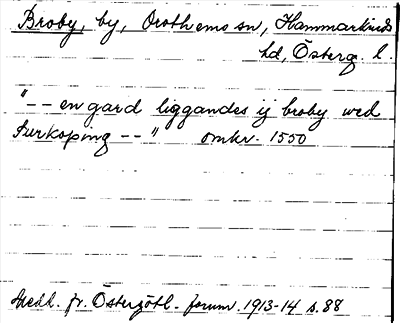 Broby, by, Drothems sn, Hammarkinds
hd, Österg. l.
"-- en gard liggandes ij broby wed
Surkoping --" omkr. 1550
Medd. fr. Östergötl. fornm. 1913-14 s. 88